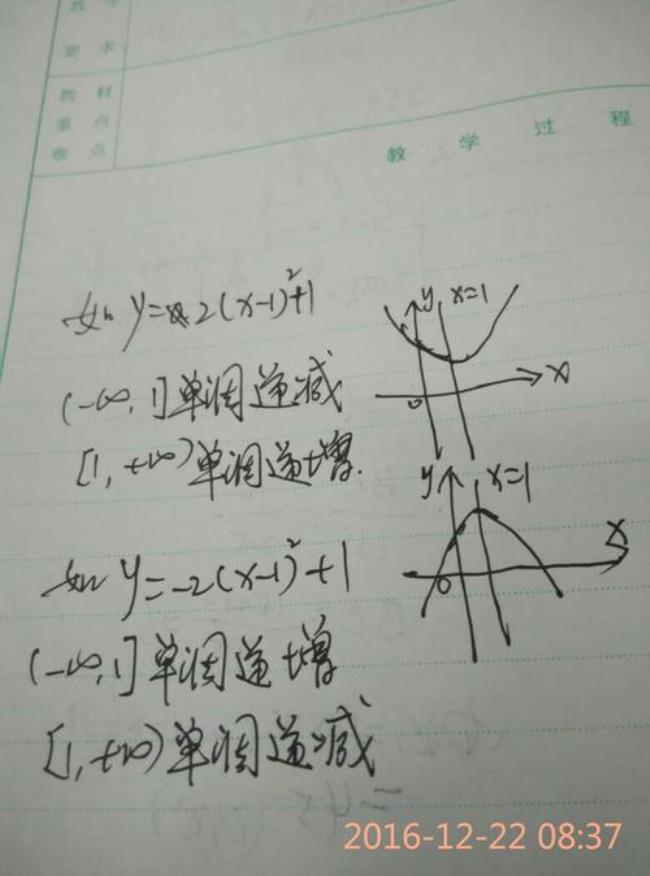 教 学
要 求
教 材
重 点
难 点
教 学 过 程
如 y=2(x-1)²+1
(-∞,1]单调递减
[1,+∞)单调递增.
y x=1
x
0
如 y=-2(x-1)²+1
(-∞,1]单调递增
[1,+∞)单调递减
y x=1
x
0
2016-12-22 08:37